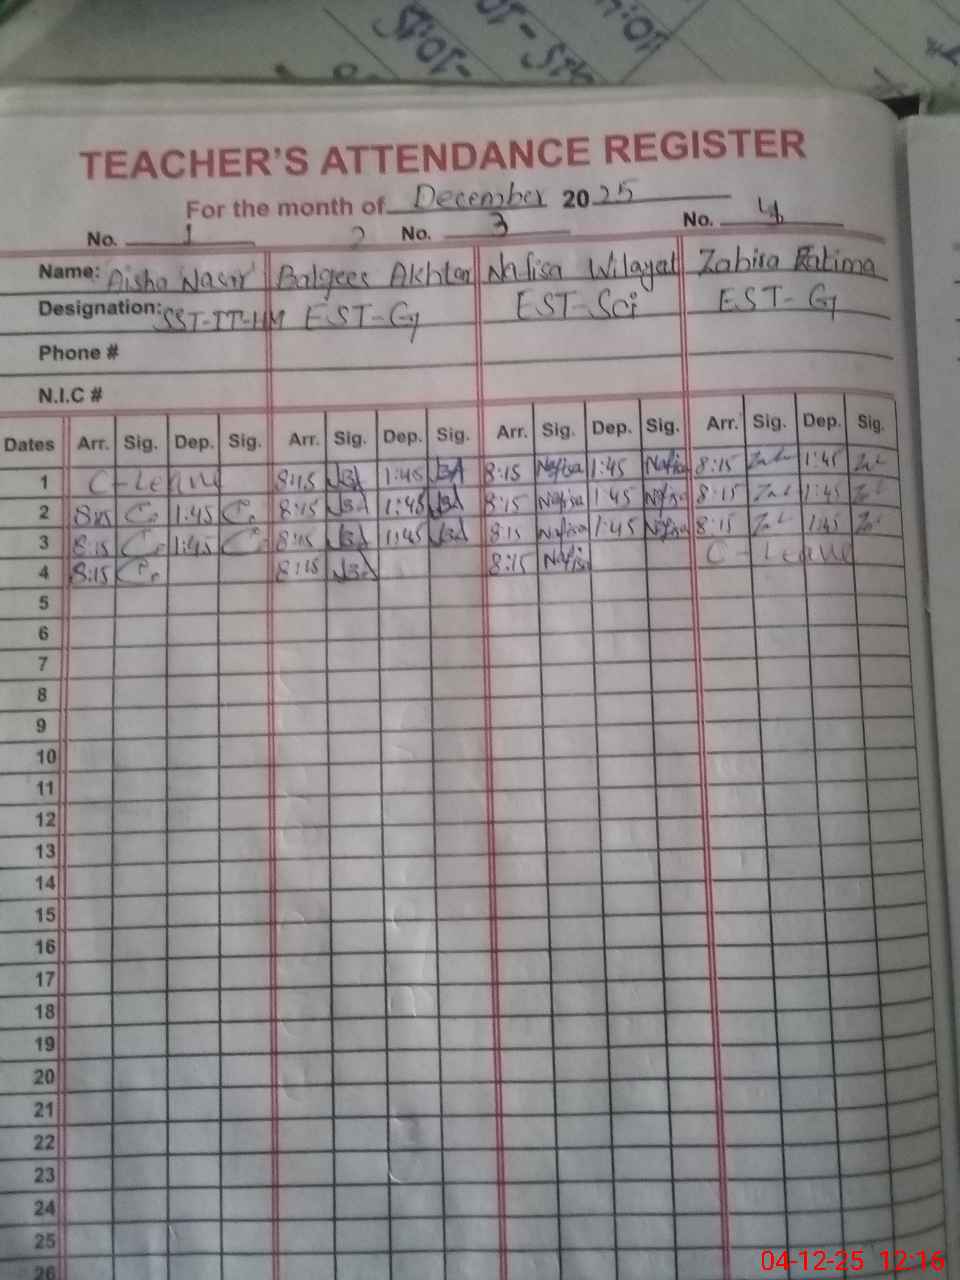 TEACHER'S ATTENDANCE REGISTER
For the month of December 2025
No. 1 2 No. 3 No. 4
Name: Aisha Nasir Balqees Akhtar Nafisa Wilayat Zahira Fatima
Designation: SST-IT-HM EST-G EST-Sci EST-G
Phone #
N.I.C #
Dates Arr. Sig. Dep. Sig. Arr. Sig. Dep. Sig. Arr. Sig. Dep. Sig. Arr. Sig. Dep. Sig.
1 C-Leave 8:15 1:45 8:15 Nafisa 1:45 Nafisa 8:15 1:45
2 8:15 1:45 8:15 1:45 8:15 Nafisa 1:45 Nafisa 8:15 1:45
3 8:15 1:45 8:15 1:45 8:15 Nafisa 1:45 Nafisa 8:15 1:45
4 8:15 8:15 8:15 Nafisa C-Leave
5
6
7
8
9
10
11
12
13
14
15
16
17
18
19
20
21
22
23
24
25
26
04-12-25 12:16